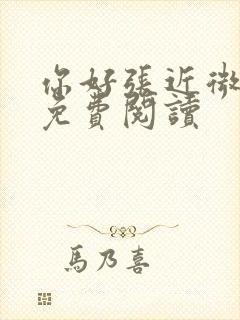 你好張近微
免費閱讀
馬乃喜